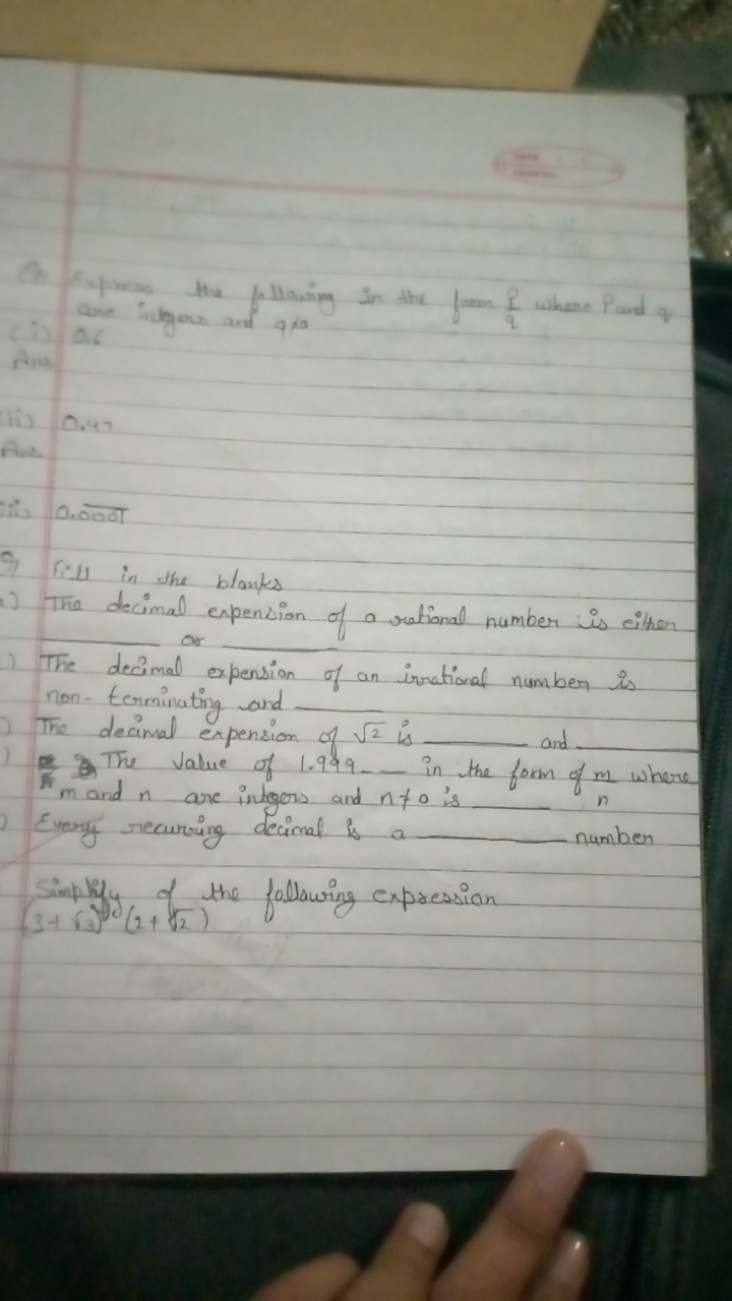 Q Express the following in the form P/q where P and q
are integers and q≠0
(i) 0.6
Ans
(ii) 0.47
Ans
(iii) 0.0001
Q Fill in the blanks
) The decimal expension of a rational number is either
______ or ______
) The decimal expension of an irrational number is
non-terminating and ______
) The decimal expension of √2 is ______ and ______
) The value of 1.999___ in the form of m/n where
m and n are integers and n≠0 is ______
) Every recurring decimal is a ______ number
Simplify of the following expression
(3+√3) (2+√2)